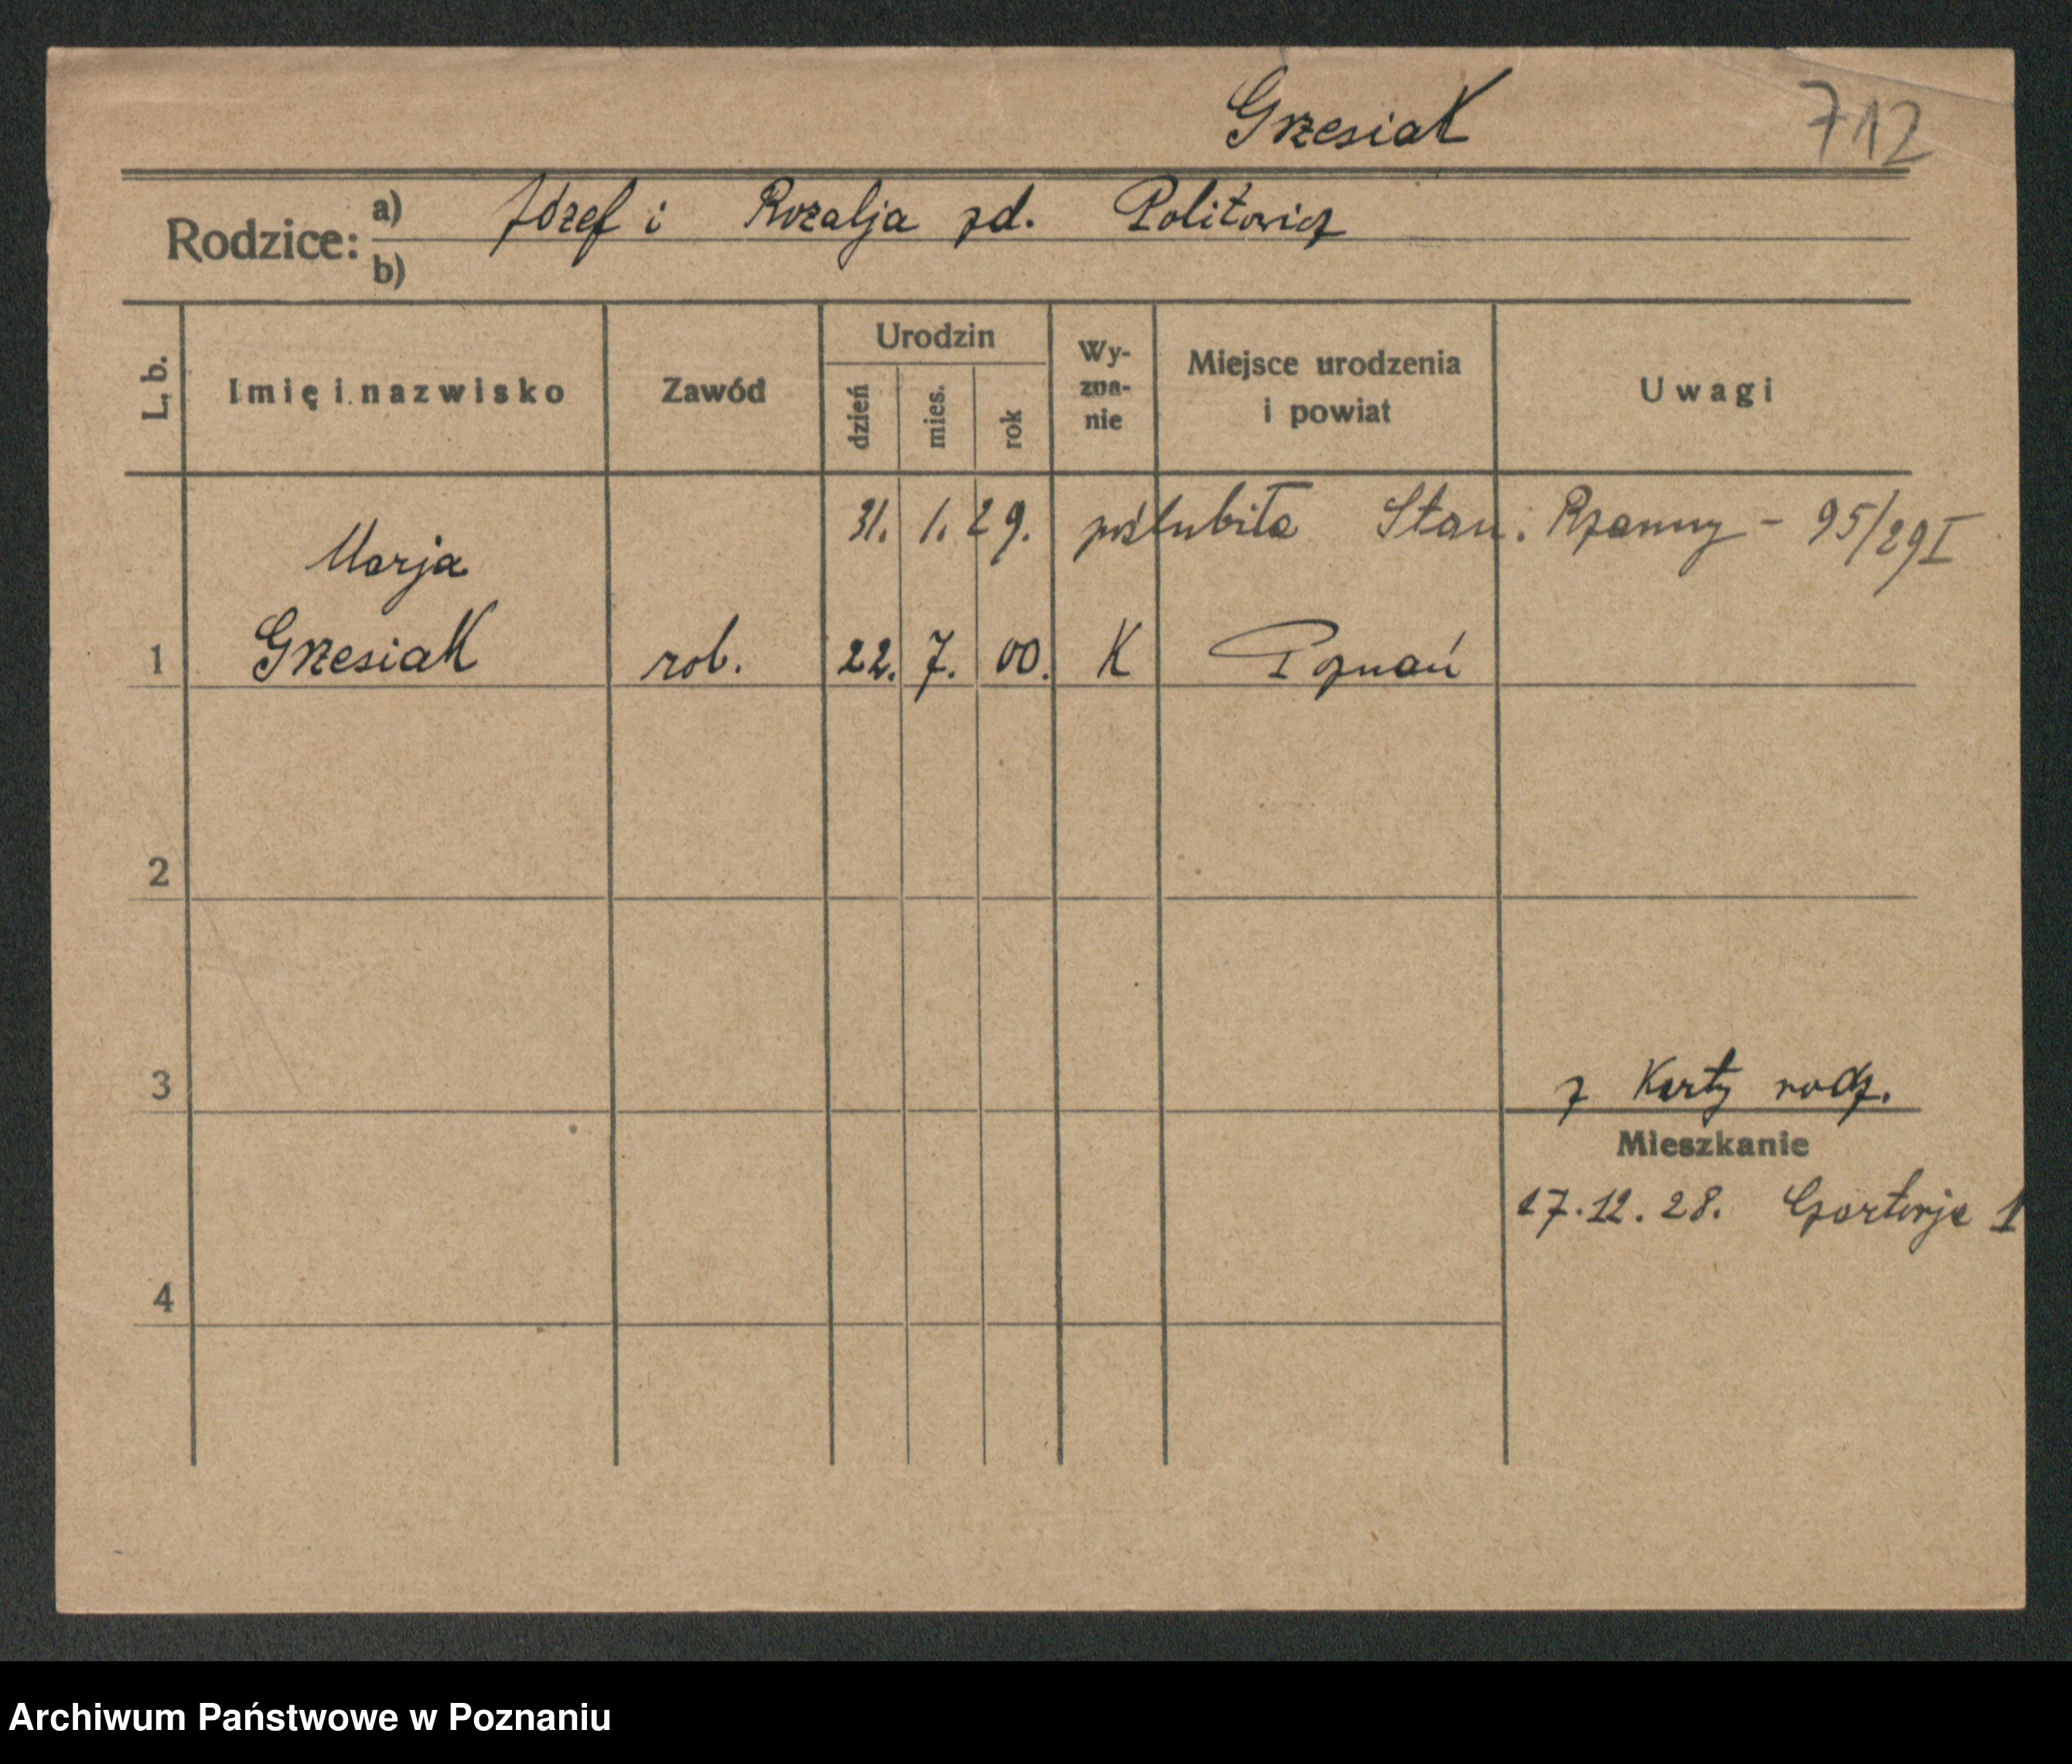 Grzesiak
712
Rodzice:
a) Józef i Rozalja zd. Politowicz
b)
L. b.
Imię i nazwisko
Zawód
Urodzin
dzień
mies.
rok
Wy-
zna-
nie
Miejsce urodzenia
i powiat
Uwagi
31. 1. 29. poślubiła Stan. Rzanny - 95/29 I
Marja
1 Grzesiak rob. 22. 7. 00. K Poznań
2
3
z Karty rodz.
Mieszkanie
17.12.28. Czartorja 1
4
Archiwum Państwowe w Poznaniu